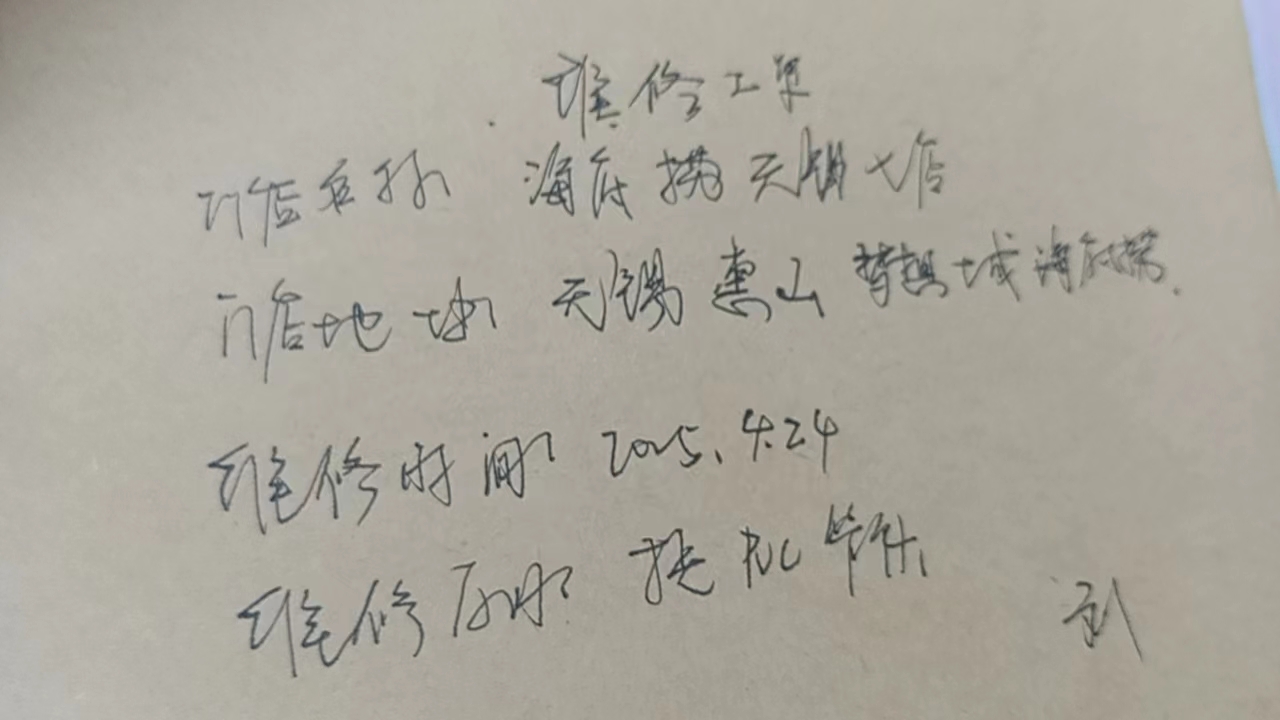 维修工单
门店名称 海底捞无锡七店
门店地址: 无锡惠山 梦想城海底捞.
维修时间: 2025.4.24
维修 换 PVC 管件